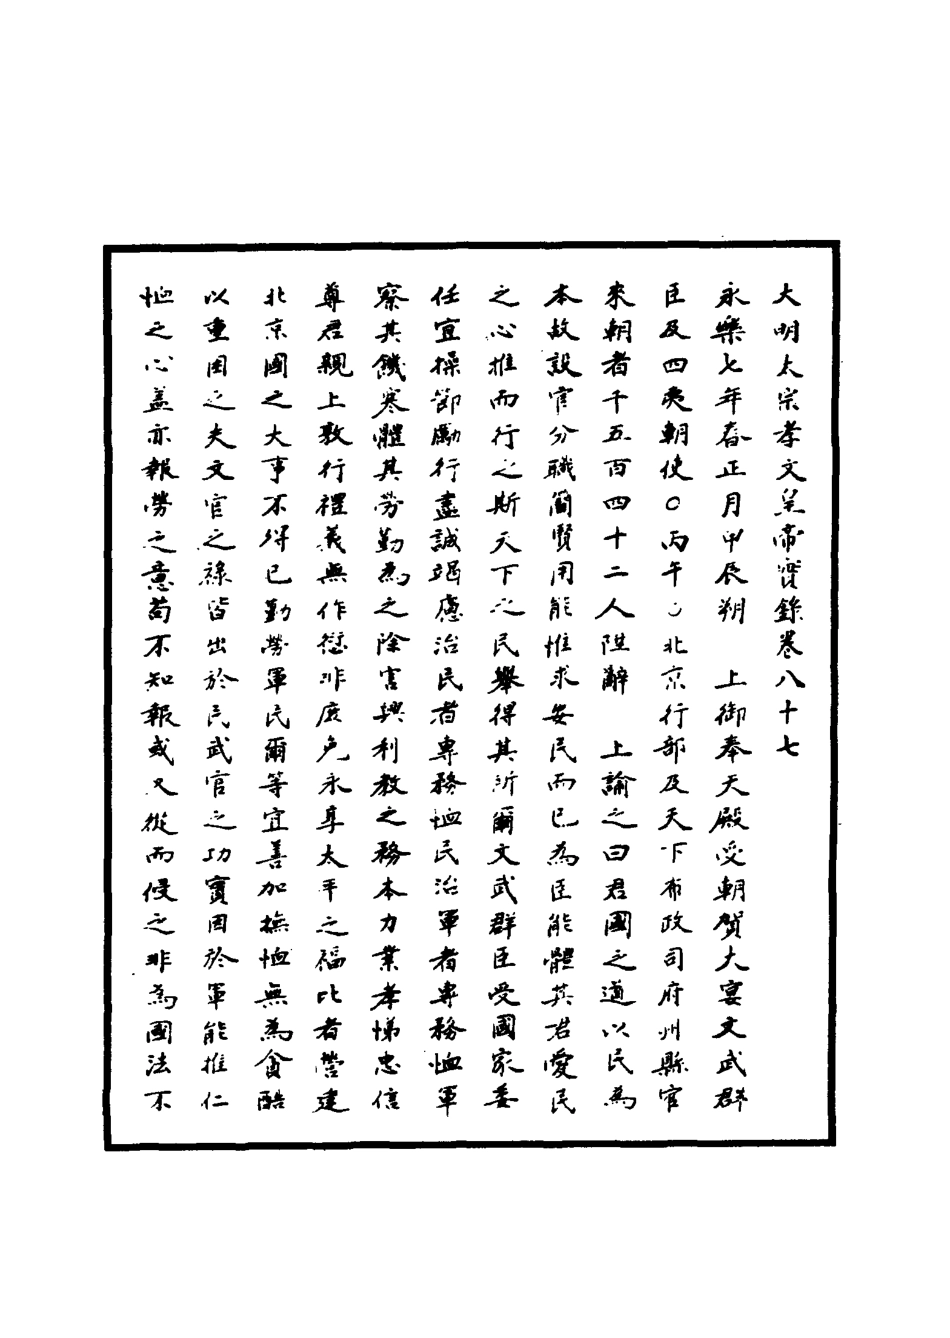 大明太宗孝文皇帝實錄卷八十七
永樂七年春正月甲辰朔　上御奉天殿受朝賀大宴文武群
臣及四夷朝使○丙午○北京行部及天下布政司府州縣官
來朝者千五百四十二人陛辭　上諭之曰君國之道以民為
本故設官分職簡賢用能惟求安民而已為臣能體其君愛民
之心推而行之斯天下之民舉得其所爾文武群臣受國家委
任宜操節勵行盡誠竭慮治民者專務恤民治軍者專務恤軍
察其饑寒體其勞勤為之除害興利教之務本力業孝悌忠信
尊君親上敦行禮義無作愆非庶免永享太平之福比者營建
北京國之大事不得已勤勞軍民爾等宜善加撫恤無為貪酷
以重困之夫文官之祿皆出於民武官之功實因於軍能推仁
恤之心蓋亦報勞之意苟不知報或又從而侵之非為國法不